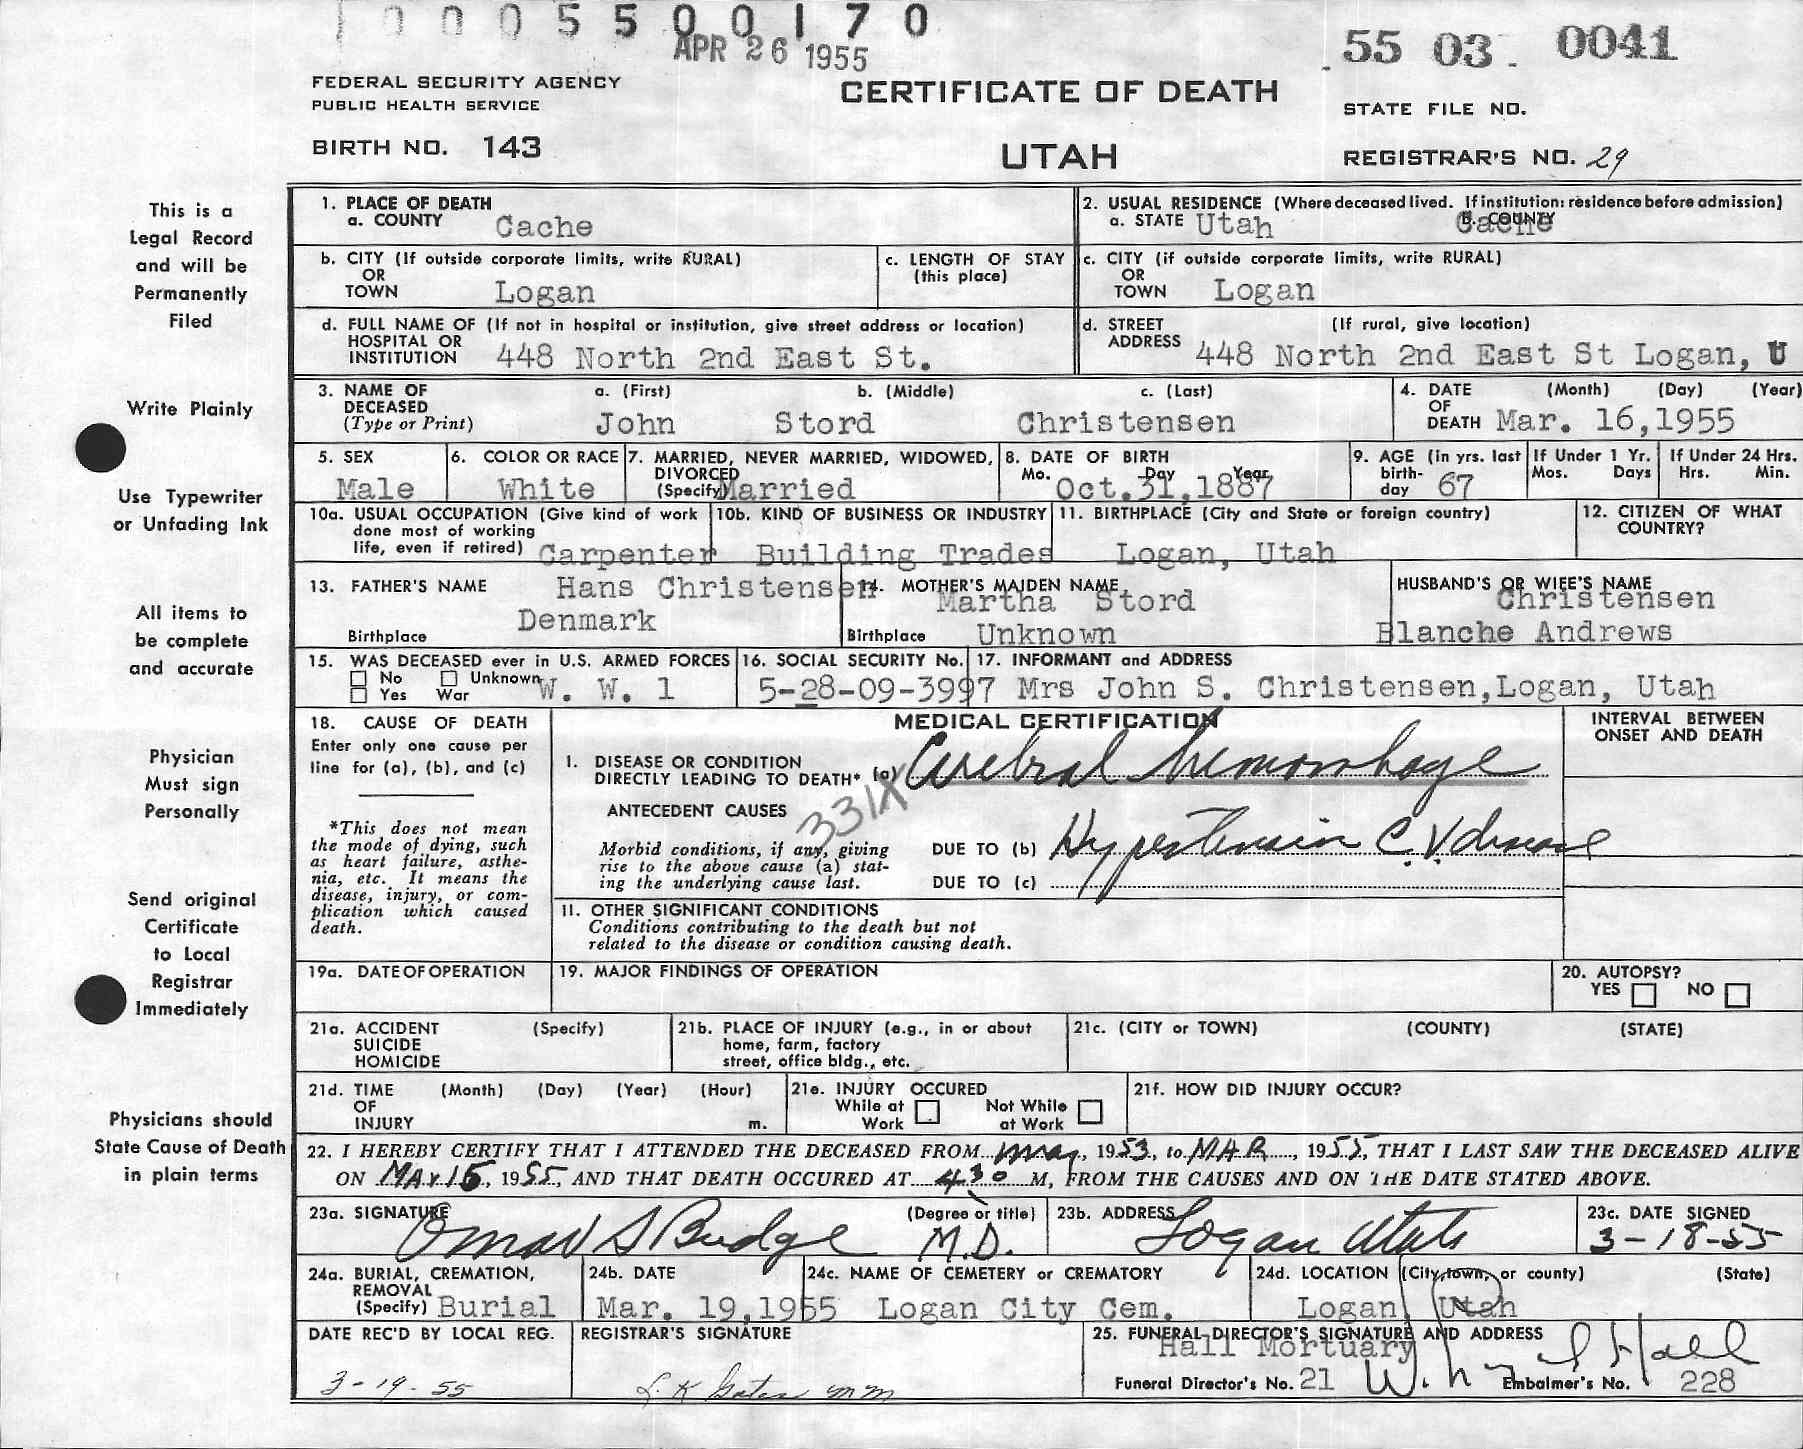 0 0 0 5 5 0 0 1 7 0
APR 26 1955
55 03 0041
FEDERAL SECURITY AGENCY
PUBLIC HEALTH SERVICE
CERTIFICATE OF DEATH
STATE FILE NO.
BIRTH NO. 143
UTAH
REGISTRAR'S NO. 29
This is a
Legal Record
and will be
Permanently
Filed
Write Plainly
Use Typewriter
or Unfading Ink
All items to
be complete
and accurate
Physician
Must sign
Personally
Send original
Certificate
to Local
Registrar
Immediately
Physicians should
State Cause of Death
in plain terms
1. PLACE OF DEATH
a. COUNTY Cache
2. USUAL RESIDENCE (Where deceased lived. If institution: residence before admission)
a. STATE Utah b. COUNTY Cache
b. CITY (If outside corporate limits, write RURAL)
OR
TOWN Logan
c. LENGTH OF STAY
(this place)
c. CITY (if outside corporate limits, write RURAL)
OR
TOWN Logan
d. FULL NAME OF (If not in hospital or institution, give street address or location)
HOSPITAL OR
INSTITUTION 448 North 2nd East St.
d. STREET (If rural, give location)
ADDRESS 448 North 2nd East St Logan, U
3. NAME OF a. (First) b. (Middle) c. (Last)
DECEASED
(Type or Print) John Stord Christensen
4. DATE (Month) (Day) (Year)
OF
DEATH Mar. 16,1955
5. SEX
Male
6. COLOR OR RACE
White
7. MARRIED, NEVER MARRIED, WIDOWED,
DIVORCED
(Specify) Married
8. DATE OF BIRTH
Mo. Day Year
Oct.31,1887
9. AGE (in yrs. last
birth-
day 67
If Under 1 Yr.
Mos. Days
If Under 24 Hrs.
Hrs. Min.
10a. USUAL OCCUPATION (Give kind of work
done most of working
life, even if retired) Carpenter
10b. KIND OF BUSINESS OR INDUSTRY
Building Trades
11. BIRTHPLACE (City and State or foreign country)
Logan, Utah
12. CITIZEN OF WHAT
COUNTRY?
13. FATHER'S NAME Hans Christensen
Birthplace Denmark
14. MOTHER'S MAIDEN NAME
Martha Stord
Birthplace Unknown
HUSBAND'S OR WIFE'S NAME
Christensen
Blanche Andrews
15. WAS DECEASED ever in U.S. ARMED FORCES
No Unknown
Yes War W. W. 1
16. SOCIAL SECURITY No.
5-28-09-3997
17. INFORMANT and ADDRESS
Mrs John S. Christensen,Logan, Utah
18. CAUSE OF DEATH
Enter only one cause per
line for (a), (b), and (c)
*This does not mean
the mode of dying, such
as heart failure, asthe-
nia, etc. It means the
disease, injury, or com-
plication which caused
death.
MEDICAL CERTIFICATION
INTERVAL BETWEEN
ONSET AND DEATH
I. DISEASE OR CONDITION
DIRECTLY LEADING TO DEATH* (a) Cerebral hemorrhage
331X
ANTECEDENT CAUSES
Morbid conditions, if any, giving
rise to the above cause (a) stat-
ing the underlying cause last.
DUE TO (b) Hypertension C.V. disease
DUE TO (c)
11. OTHER SIGNIFICANT CONDITIONS
Conditions contributing to the death but not
related to the disease or condition causing death.
19a. DATE OF OPERATION
19. MAJOR FINDINGS OF OPERATION
20. AUTOPSY?
YES NO
21a. ACCIDENT (Specify)
SUICIDE
HOMICIDE
21b. PLACE OF INJURY (e.g., in or about
home, farm, factory
street, office bldg., etc.
21c. (CITY or TOWN) (COUNTY) (STATE)
21d. TIME (Month) (Day) (Year) (Hour)
OF
INJURY m.
21e. INJURY OCCURED
While at Work Not While at Work
21f. HOW DID INJURY OCCUR?
22. I HEREBY CERTIFY THAT I ATTENDED THE DECEASED FROM May, 1953, to MAR, 1955, THAT I LAST SAW THE DECEASED ALIVE
ON MAR 15, 1955, AND THAT DEATH OCCURED AT 430 M, FROM THE CAUSES AND ON THE DATE STATED ABOVE.
23a. SIGNATURE (Degree or title)
Omar S Budge M.D.
23b. ADDRESS
Logan Utah
23c. DATE SIGNED
3-18-55
24a. BURIAL, CREMATION,
REMOVAL
(Specify) Burial
24b. DATE
Mar. 19,1955
24c. NAME OF CEMETERY or CREMATORY
Logan City Cem.
24d. LOCATION (City, town, or county) (State)
Logan Utah
DATE REC'D BY LOCAL REG.
3-19-55
REGISTRAR'S SIGNATURE
25. FUNERAL DIRECTOR'S SIGNATURE AND ADDRESS
Hall Mortuary
Funeral Director's No. 21 Embalmer's No. 228